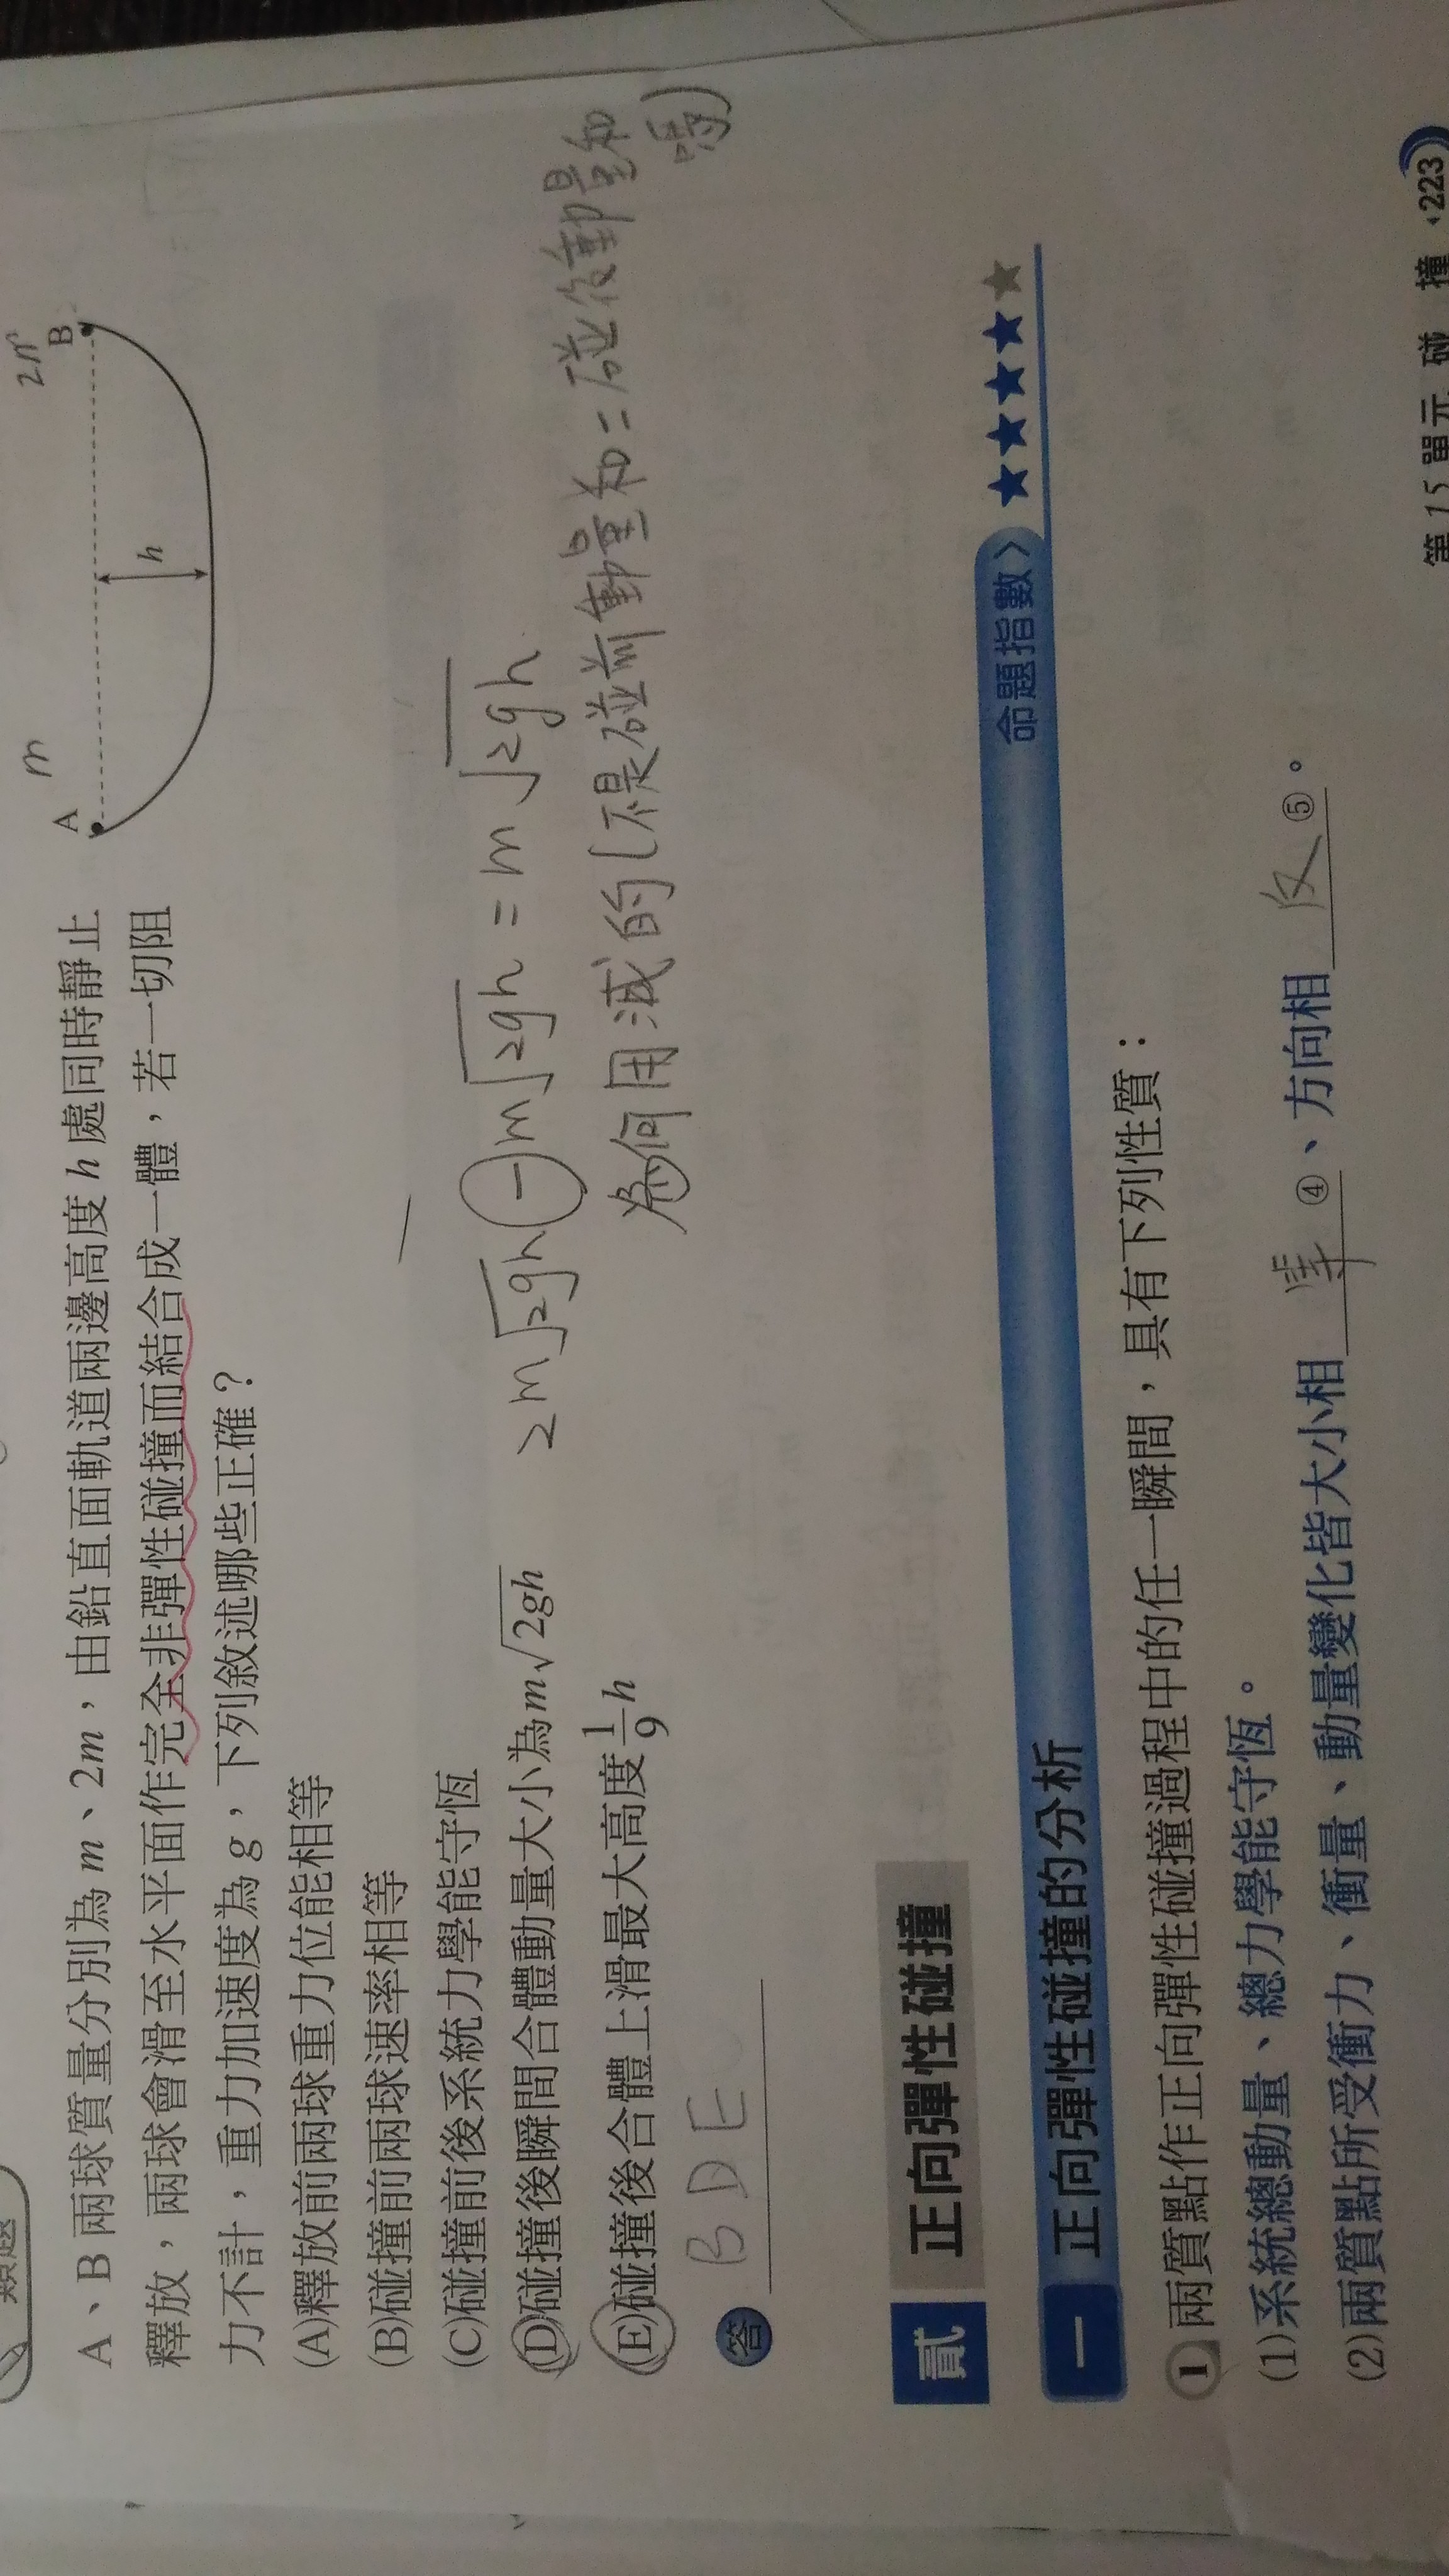 類題
A、B 兩球質量分別為 m、2m，由鉛直面軌道兩邊高度 h 處同時靜止
釋放，兩球會滑至水平面作完全非彈性碰撞而結合成一體，若一切阻
力不計，重力加速度為 g，下列敘述哪些正確？
(A)釋放前兩球重力位能相等
(B)碰撞前兩球速率相等
(C)碰撞前後系統力學能守恆
(D)碰撞後瞬間合體動量大小為 m√2gh
(E)碰撞後合體上滑最大高度 1/9 h
m
2m
A
B
h
2m√2gh − m√2gh = m√2gh
為何用減的(不是碰前動量和=碰後動量和
嗎)
答 BDE
貳 正向彈性碰撞
一 正向彈性碰撞的分析 命題指數〉★★★★★
1 兩質點作正向彈性碰撞過程中的任一瞬間，具有下列性質：
(1)系統總動量、總力學能守恆。
(2)兩質點所受衝力、衝量、動量變化皆大小相 ④、方向相 反 ⑤。
第15單元 碰 撞 223